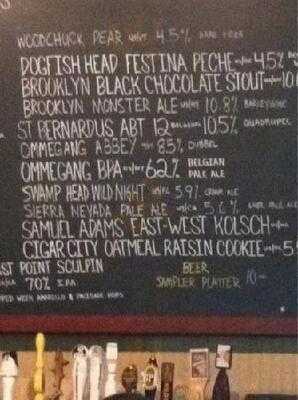 WOODCHUCK PEAR 4.5% HARD CIDER
DOGFISH HEAD FESTINA PECHE 4.5%
BROOKLYN BLACK CHOCOLATE STOUT 10
BROOKLYN MONSTER ALE 10.8% BARLEYWINE
ST BERNARDUS ABT 12 BELGIUM 10.5% QUADRUPEL
OMMEGANG ABBEY 8.5% DUBBEL
OMMEGANG BPA 6.2% BELGIAN PALE ALE
SWAMP HEAD WILD NIGHT 5.9% CREAM ALE
SIERRA NEVADA PALE ALE 5.6% PALE ALE
SAMUEL ADAMS EAST-WEST KOLSCH
CIGAR CITY OATMEAL RAISIN COOKIE 5
AST POINT SCULPIN
7.0% IPA
PED WITH AMARILLO & HOPS
BEER
SAMPLER PLATTER 10-